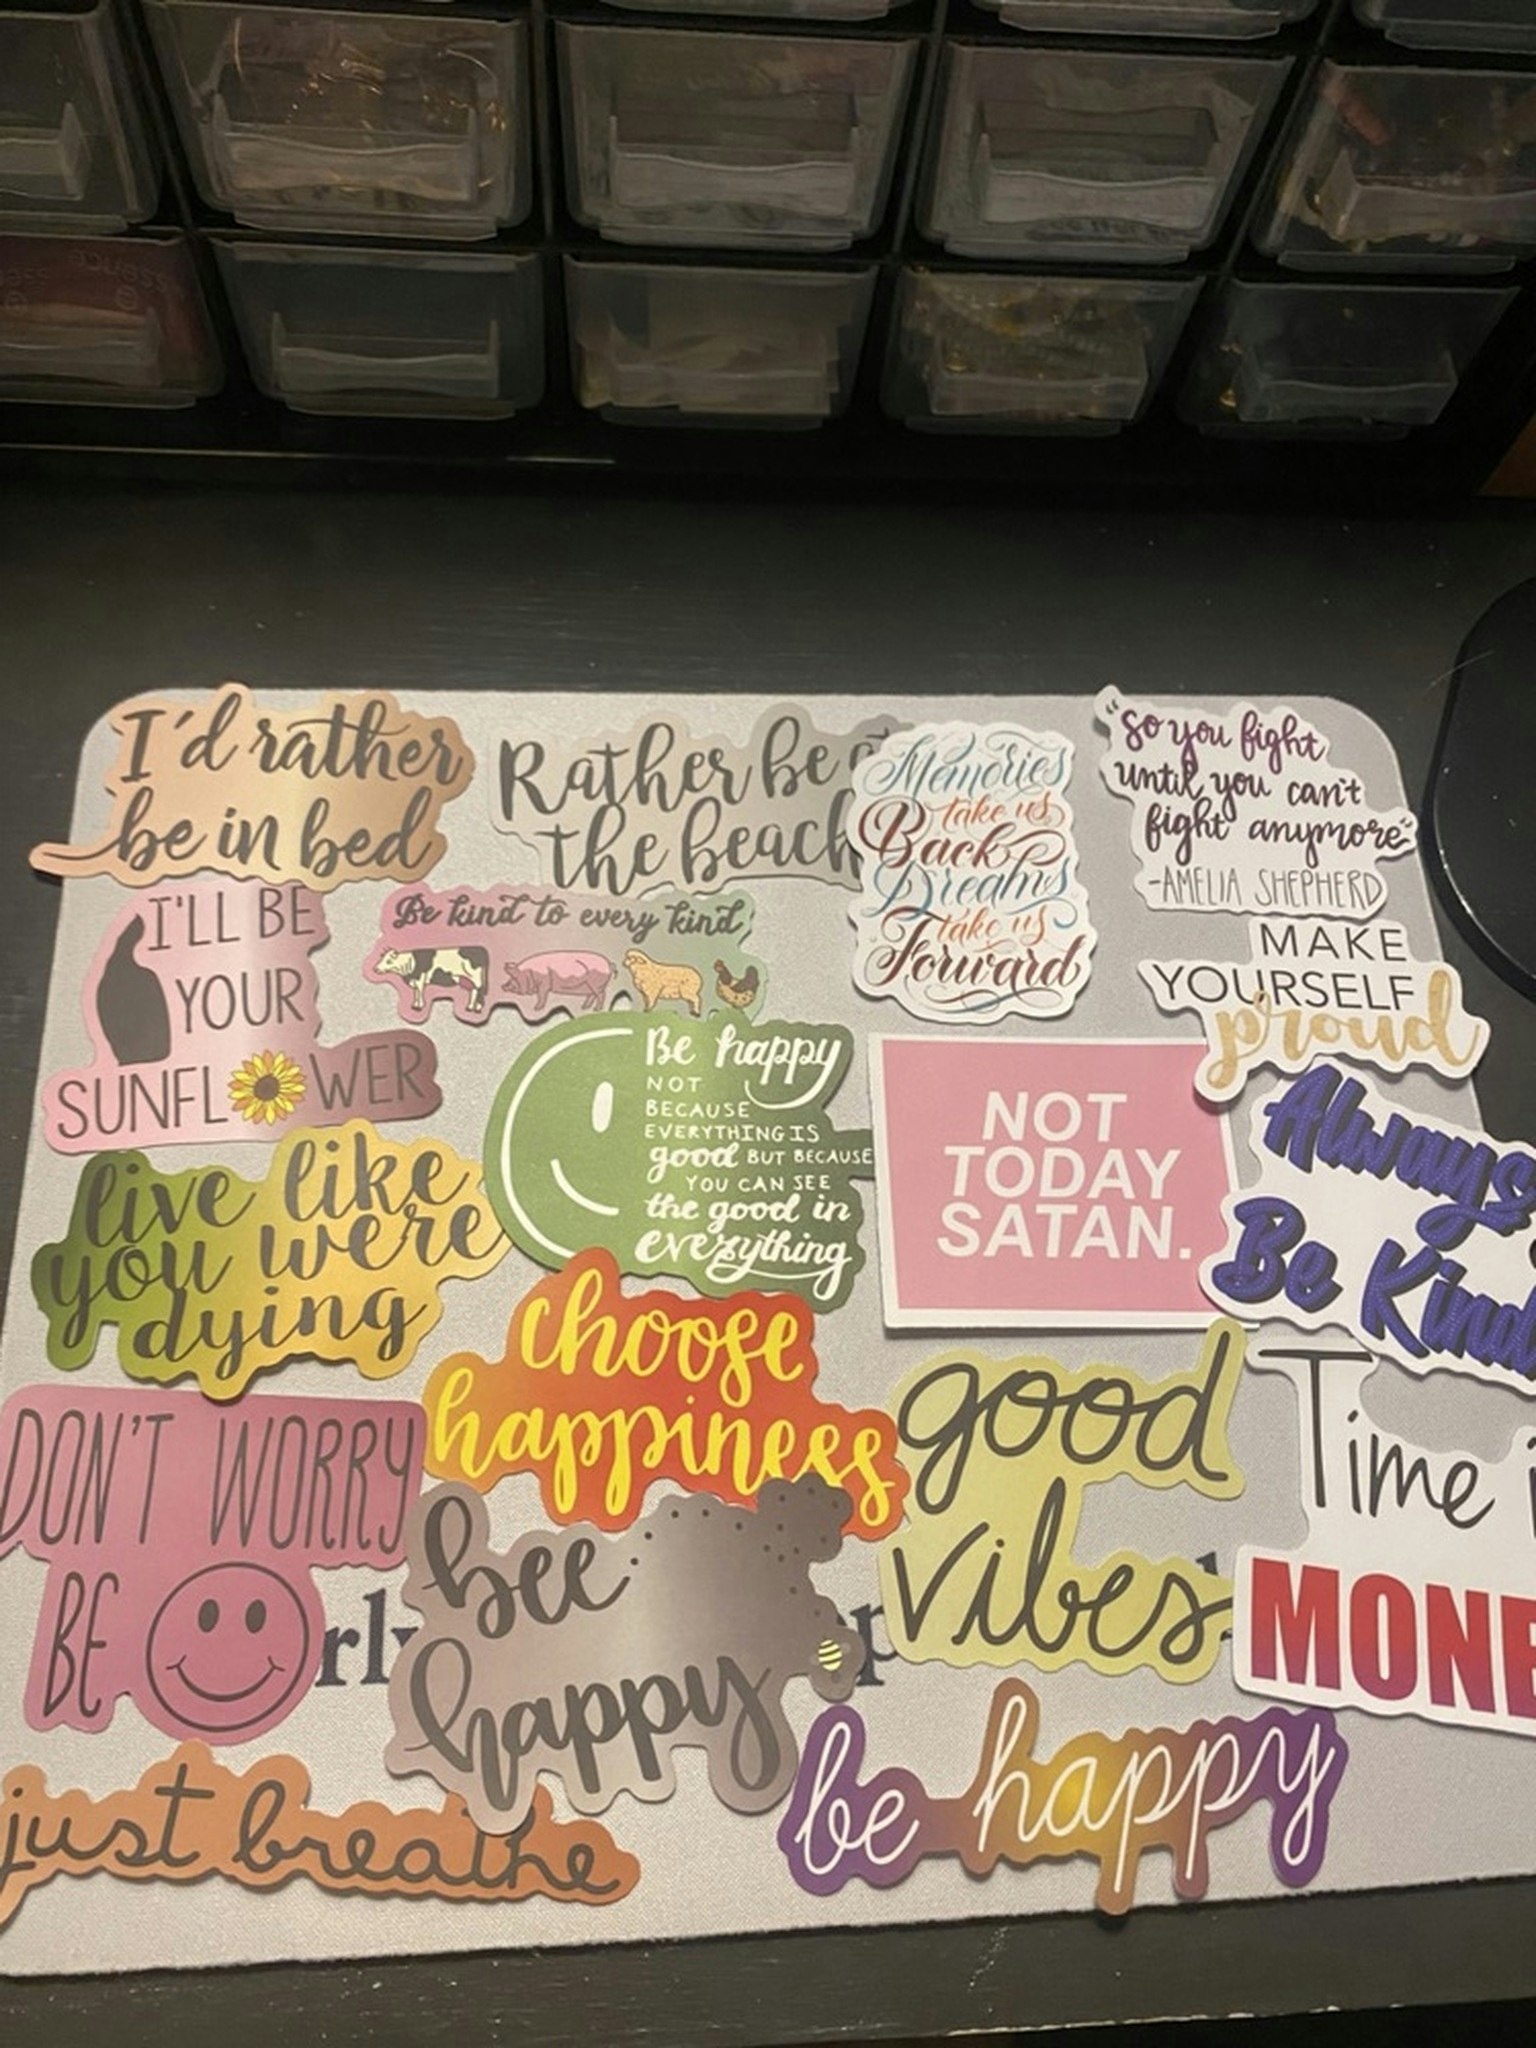 I'd rather
be in bed
Rather be at
the beach
Memories
take us
Back
Dreams
take us
Forward
"So you fight
until you can't
fight anymore"
-AMELIA SHEPHERD
I'LL BE
YOUR
SUNFLWER
Be kind to every kind
MAKE
YOURSELF
proud
Be happy
NOT
BECAUSE
EVERYTHING IS
good BUT BECAUSE
YOU CAN SEE
the good in
everything
NOT
TODAY
SATAN.
Always
Be Kind
live like
you were
dying
choose
happiness
good
vibes
Time i
MONE
DON'T WORRY
BE
bee
happy
be happy
just breathe